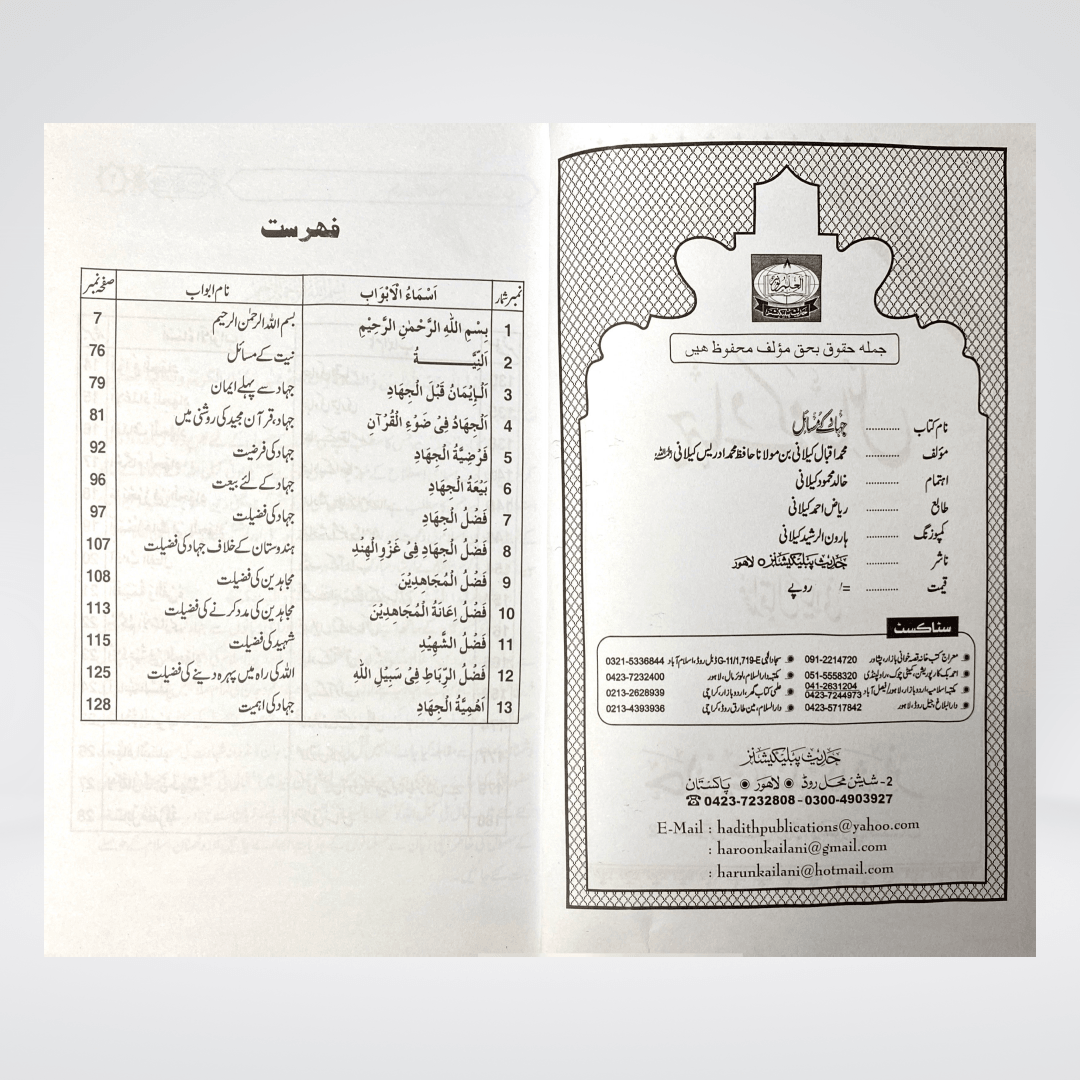 جملہ حقوق بحق مؤلف محفوظ ہیں
نام کتاب ............ جہاد کے مسائل
مؤلف ............ محمد اقبال کیلانی بن مولانا حافظ محمد ادریس کیلانی
اہتمام ............ خالد محمود کیلانی
طالع ............ ریاض احمد کیلانی
کمپوزنگ ............ ہارون الرشید کیلانی
ناشر ............ حدیث پبلیکیشنز ○ لاہور
قیمت ............ =/ روپے
سٹاکسٹ
● معراج کتب خانہ قصہ خوانی بازار، پشاور 091-2214720
● احمد بک کارپوریشن، کمیٹی چوک، راولپنڈی 051-5558320
● مکتبہ اسلامیہ اردو بازار، لاہور/فیصل آباد 041-2631204 0423-7244973
● دارالبلاغ، جیل روڈ، لاہور 0423-5717842
● سجاد الٰہی G-11/1,719-E ڈبل روڈ، اسلام آباد 0321-5336844
● مکتبہ دارالسلام، لوئر مال، لاہور 0423-7232400
● علمی کتاب گھر، اردو بازار، کراچی 0213-2628939
● دارالسلام، مین طارق روڈ، کراچی 0213-4393936
حدیث پبلیکیشنز
2- شیش محل روڈ ◉ لاہور ◉ پاکستان
☎ 0423-7232808 - 0300-4903927
E-Mail : hadithpublications@yahoo.com
: haroonkailani@gmail.com
: harunkailani@hotmail.com
فہرست
نمبر شمار اَسْمَاءُ الْاَبْوَاب نام ابواب صفحہ نمبر
1 بِسْمِ اللّٰهِ الرَّحْمٰنِ الرَّحِيْمِ بسم اللہ الرحمٰن الرحیم 7
2 اَلنِّيَّــــــةُ نیت کے مسائل 76
3 اَلْاِيْمَانُ قَبْلَ الْجِهَادِ جہاد سے پہلے ایمان 79
4 اَلْجِهَادُ فِىْ ضَوْءِ الْقُرْآنِ جہاد، قرآن مجید کی روشنی میں 81
5 فَرْضِيَّةُ الْجِهَادِ جہاد کی فرضیت 92
6 بَيْعَةُ الْجِهَادِ جہاد کے لئے بیعت 96
7 فَضْلُ الْجِهَادِ جہاد کی فضیلت 97
8 فَضْلُ الْجِهَادِ فِىْ غَزْوِ الْهِنْدِ ہندوستان کے خلاف جہاد کی فضیلت 107
9 فَضْلُ الْمُجَاهِدِيْنَ مجاہدین کی فضیلت 108
10 فَضْلُ اِعَانَةُ الْمُجَاهِدِيْنَ مجاہدین کی مدد کرنے کی فضیلت 113
11 فَضْلُ الشَّهِيْدِ شہید کی فضیلت 115
12 فَضْلُ الرِّبَاطِ فِىْ سَبِيْلِ اللّٰهِ اللہ کی راہ میں پہرہ دینے کی فضیلت 125
13 اَهْمِيَّةُ الْجِهَادِ جہاد کی اہمیت 128